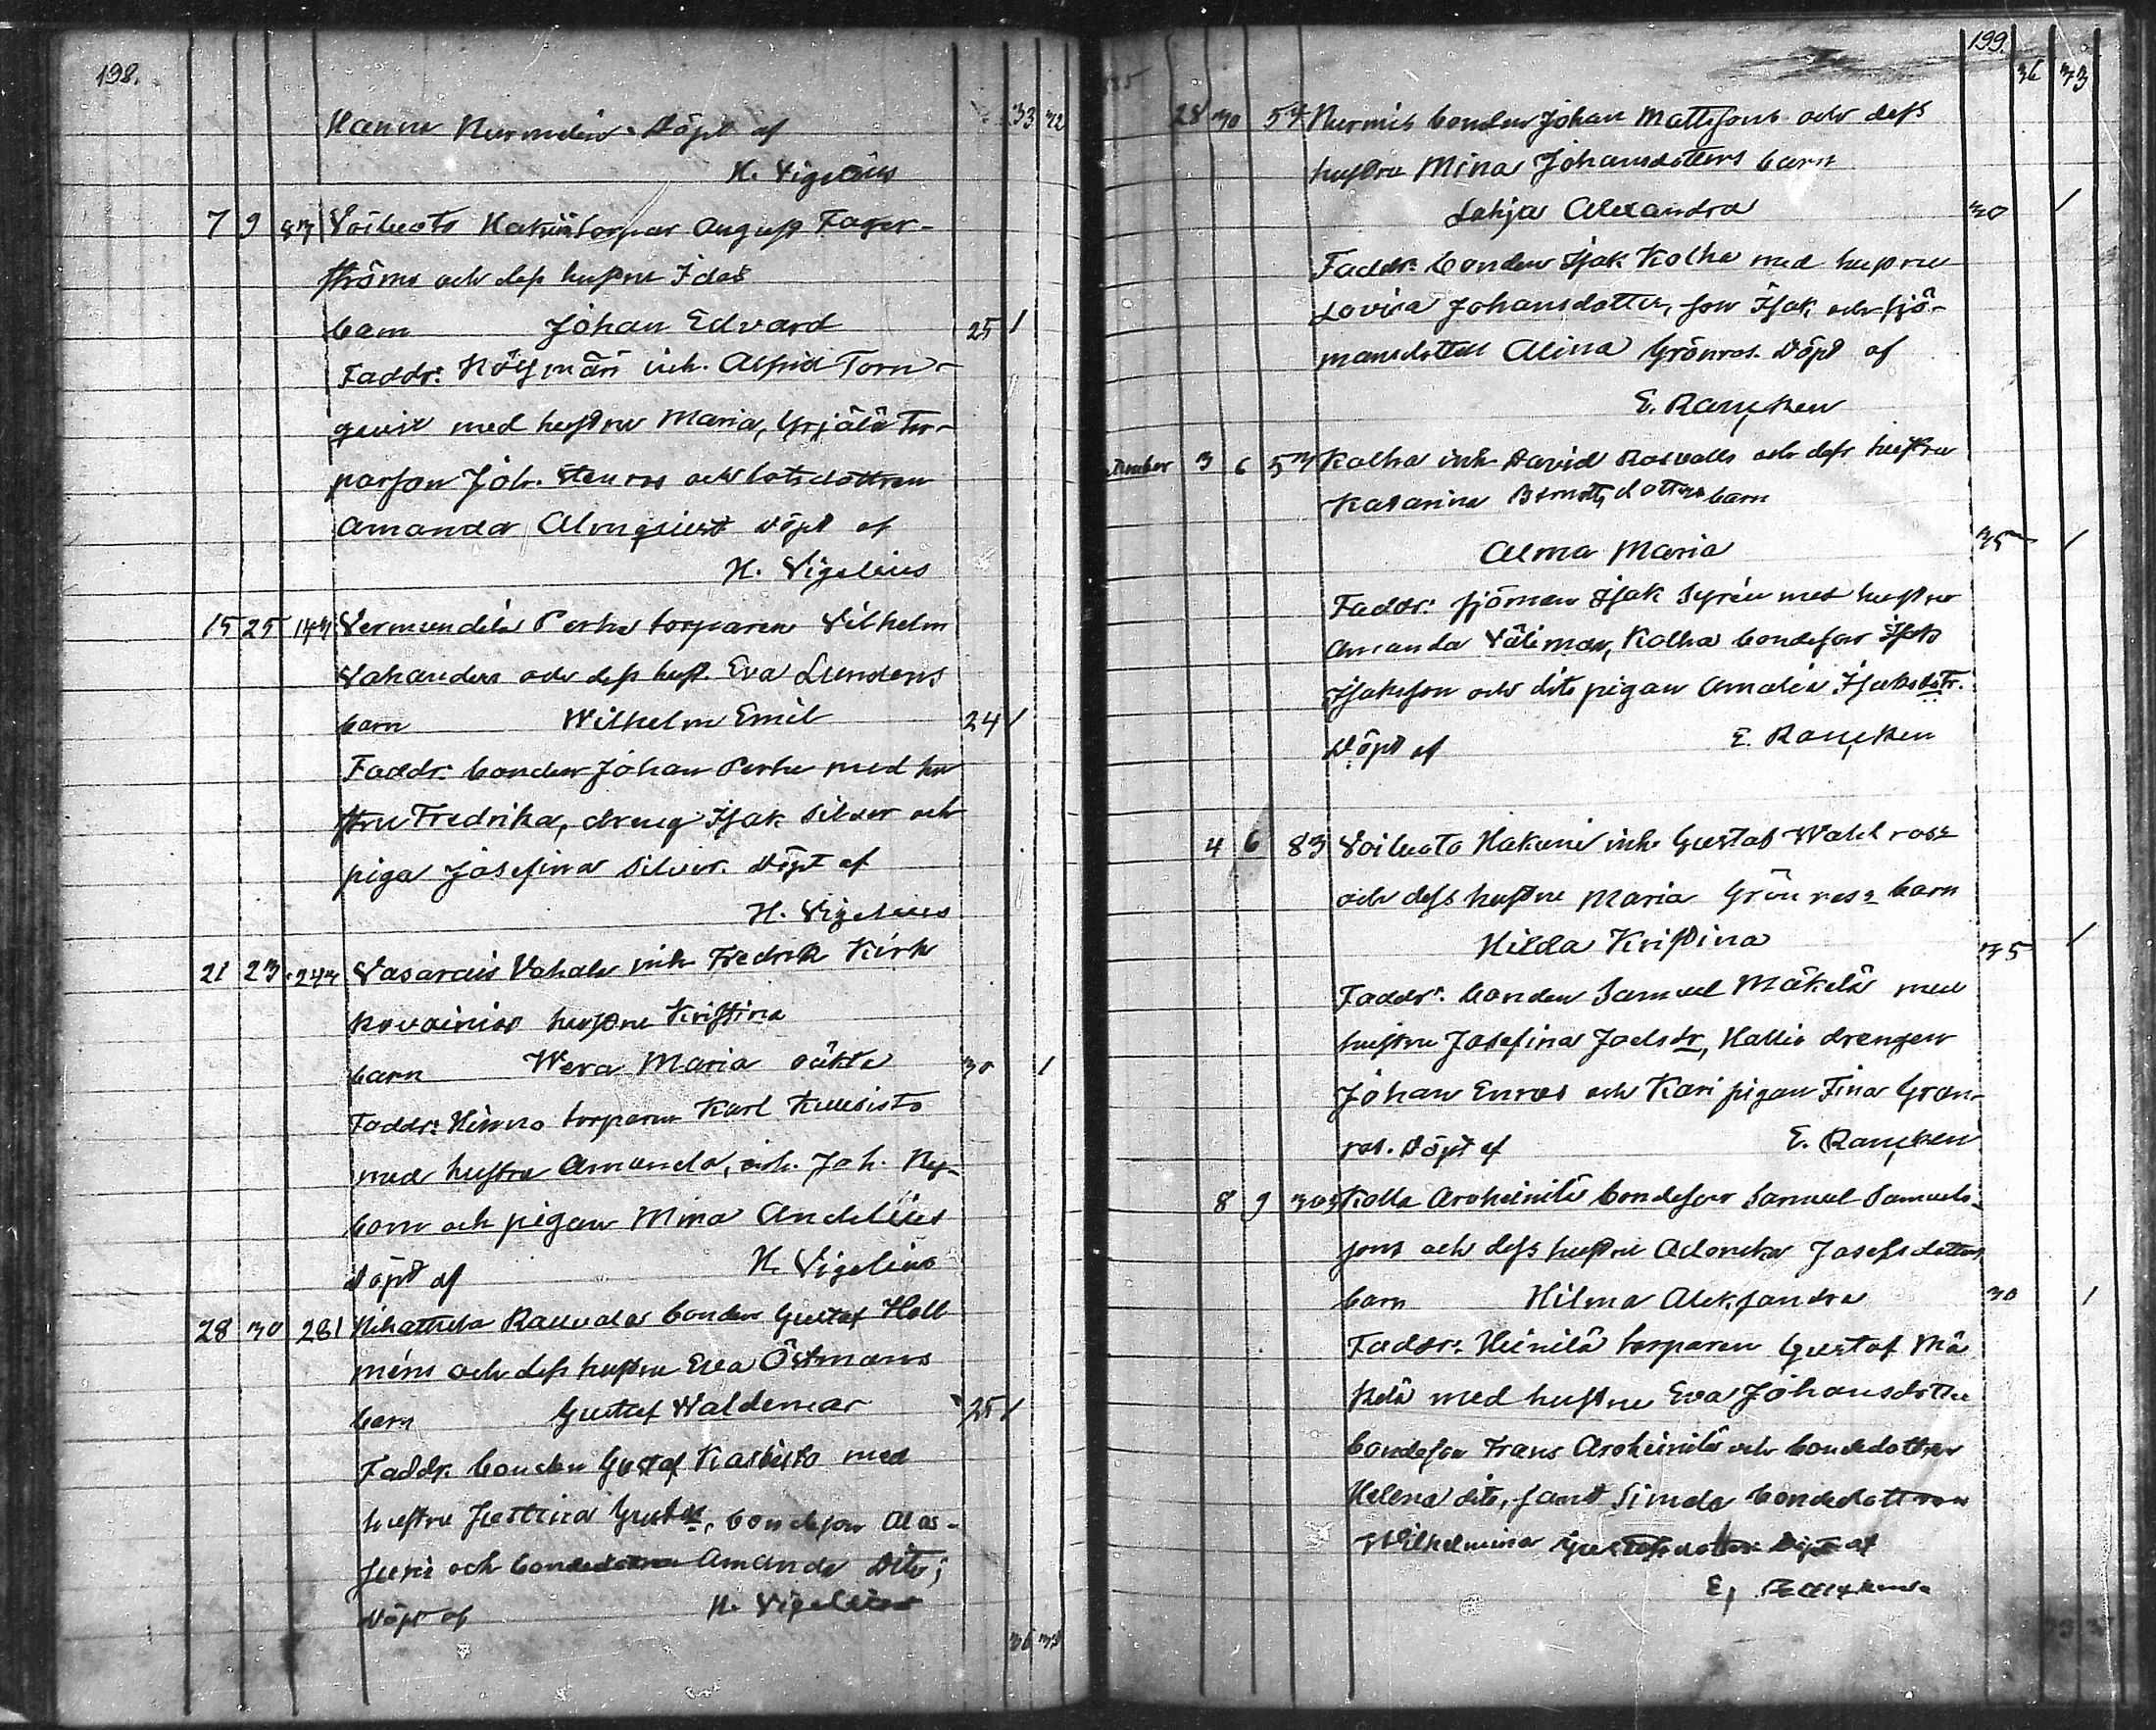 198.
33 32
Hanna Nurmelin. Döpt af
H. Vigelius
7 9 83 Voiluoto Hakuni torpar August Fager-
ströms och dess hustru Idas
barn Johan Edvard 25 1
Faddr: inh. Alfrid Torn-
qvist med hustru Maria, Yrjälä tor-
parson Joh. Stenros och lotsdottren
Amanda Almqvist Döpt af
H. Vigelius
15 25 Vermundila Perho torparen Vilhelm
Vahanders och dess hust. Eva Lundens
barn Wilhelm Emil 24 1
Faddr: bonden Johan Perho med hu
stru Fredrika, dreng Isak Silver och
piga Josefina Silver. Döpt af
H. Vigelius
21 23 Vasarais Vahala inh Fredrik Kirk
hustru Kristina
barn Wera Maria oäkta 30 1
Faddr: torparen Karl Kuusisto
med hustru Amanda, inh. Joh. Ny-
bom och pigan Mina Andelius
Döpt af H. Vigelius
28 30 281 bonden Gustaf Hell
méns och dess hustru Eva Östmans
barn Gustaf Waldemar 25 1
Faddr. bonden Gustaf Kaskisto med
hustru Justina Gustdr, bondeson Alas-
juri och bondedottren Amanda Dito;
Döpt af H. Vigelius
36 33
199.
36 33
28 30 57 Nurmis bonden Johan Mattssons och dess
hustru Mina Johansdotters barn
Lahja Alexandra 30 1
Faddr: bonden Isak Kolha med hustru
Lovisa Johansdotter, son Isak och sjö-
mansdottern Alina Grönros. Döpt af
E. Rancken
3 6 53 Kolha inh David Rosvalls och dess hustru
Katarina dotters barn
Alma Maria 35 1
Faddr: sjöman Isak Syrén med hustru
Amanda Välimaa, Kolha bondeson Isak
Isaksson och dito pigan Amalia Isaksdotr.
Döpt af E. Rancken
4 6 83 Voiluoto Hakuni inh Gustaf Wahlroos
och dess hustru Maria Grönroos barn
Hilda Kristina 35 1
Faddr: bonden Samuel Mäkelä med
hustru Josefina Joelsdr, Hallia drengen
Johan Enros och Kari pigan Fina Gran-
ros. Döpt af E. Rancken
8 9 303 Kolla Aroheinilä bondeson Samuel Samuels-
sons och dess hustru Adamina Josefsdotters
barn Hilma Aleksandra 30 1
Faddr: Heinilä torparen Gustaf Mä
kelä med hustru Eva Johansdotter
bondeson Frans Aroheinilä och bondedottren
Helena dito, samt Simola bondedottren
Wilhelmina Gustafsdotter Döpt af
E. Rancken